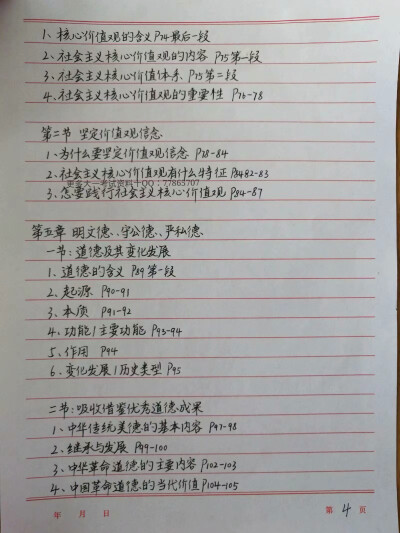 1、核心价值观的含义 P74最后一段
2、社会主义核心价值观的内容 P75第一段
3、社会主义核心价值体系 P75第二段
4、社会主义核心价值观的重要性 P76-78
第二节 坚定价值观信念
1、为什么要坚定价值观信念 P78-84
2、社会主义核心价值观有什么特征 P84 82-83
更多大一考试资料+QQ:77865707
3、怎样践行社会主义核心价值观 P84-87
第五章 明大德、守公德、严私德
一节:道德及其变化发展
1、道德的含义 P89第一段
2、起源 P90-91
3、本质 P91-92
4、功能/主要功能 P93-94
5、作用 P94
6、变化发展/历史类型 P95
二节:吸收借鉴优秀道德成果
1、中华传统美德的基本内容 P97-98
2、继承与发展 P99-100
3、中华革命道德的主要内容 P102-103
4、中国革命道德的当代价值 P104-105
年 月 日 第 4 页